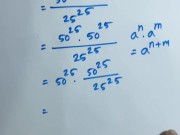 = 50
25^25
= 50^25 · 50^25 / 25^25
a^n · a^m
= a^n+m
= 50^25 · 50^25 / 25^25
=